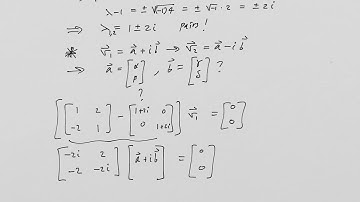 λ-1 = ±√(-1)4 = ±√-1 · 2 = ±2i
⇒ λ₁,₂ = 1 ± 2i pair!
* v⃗₁ = a⃗ + i b⃗ → v⃗₂ = a⃗ - i b⃗
→ a⃗ = [α β], b⃗ = [γ δ] ?
?
[[1 2 -2 1] - [1+2i 0 0 1+2i]] v⃗₁ = [0 0]
[-2i 2 -2 -2i] [a⃗ + i b⃗] = [0 0]